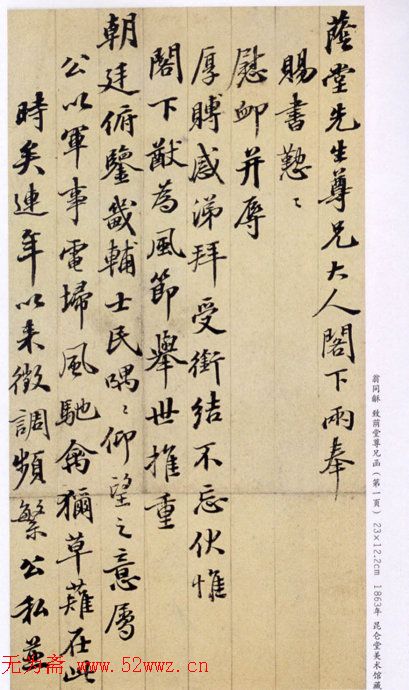 蔭堂先生尊兄大人閣下兩奉
賜書懃〻
慰卹并辱
厚賻感涕拜受銜結不忘伏惟
閣下猷為風節舉世推重
朝廷俯鑒畿輔士民喁〻仰望之意屬
公以軍事電埽風馳禽獮草薙在此
時矣連年以来徵調頻繁公私並
翁同龢 致荫堂尊兄函（第一頁） 23×12.2cm 1863年 昆仑堂美术馆藏
无为斋 www.52wwz.cn